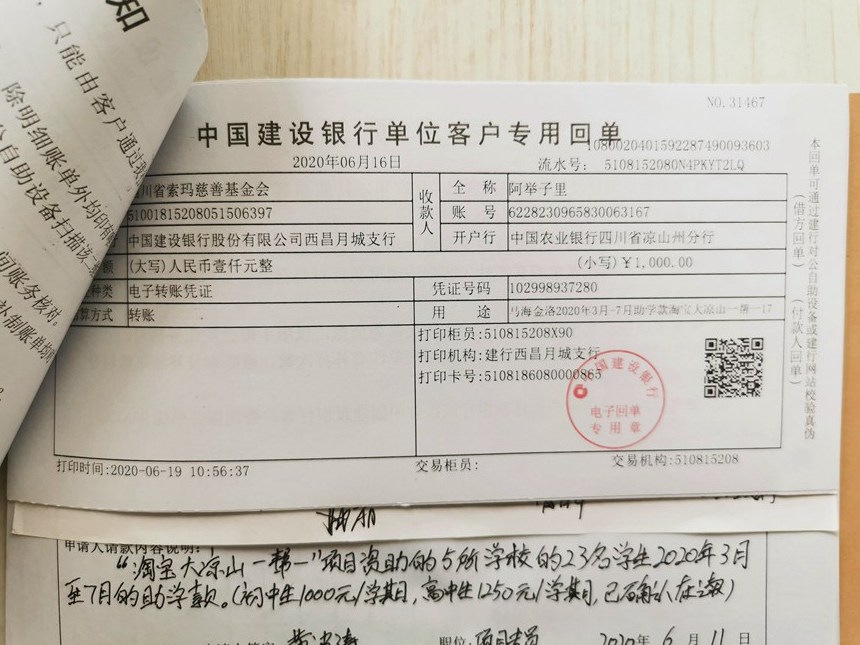 知
，只能由客户通过我
除明细账单外均印有
公自助设备扫描该二
司账务核对。
NO.31467
中国建设银行单位客户专用回单
1080020401592287490093603
2020年06月16日
流水号： 5108152080N4PKYT2LQ
川省索玛慈善基金会
收款人
全 称
阿举子里
51001815208051506397
账 号
6228230965830063167
中国建设银行股份有限公司西昌月城支行
开户行
中国农业银行四川省凉山州分行
额
(大写)人民币壹仟元整
(小写)￥1,000.00
种类
电子转账凭证
凭证号码
102998937280
算方式
转账
用 途
马海金洛2020年3月-7月助学款淘宝大凉山一帮一17
打印柜员:510815208X90
打印机构:建行西昌月城支行
打印卡号:5108186080000865
中国建设银行
电子回单
专用章
打印时间:2020-06-19 10:56:37
交易柜员:
交易机构:510815208
本回单可通过建行对公自助设备或建行网站校验真伪
(借方回单)
(付款人回单)
申请人请款内容说明：
“淘宝大凉山一帮一”项目资助的5所学校的23名学生2020年3月
至7月的助学款。(初中生1000元/学期，高中生1250元/学期，已确认在读)
职位: 项目专员
2020年 6月 11日